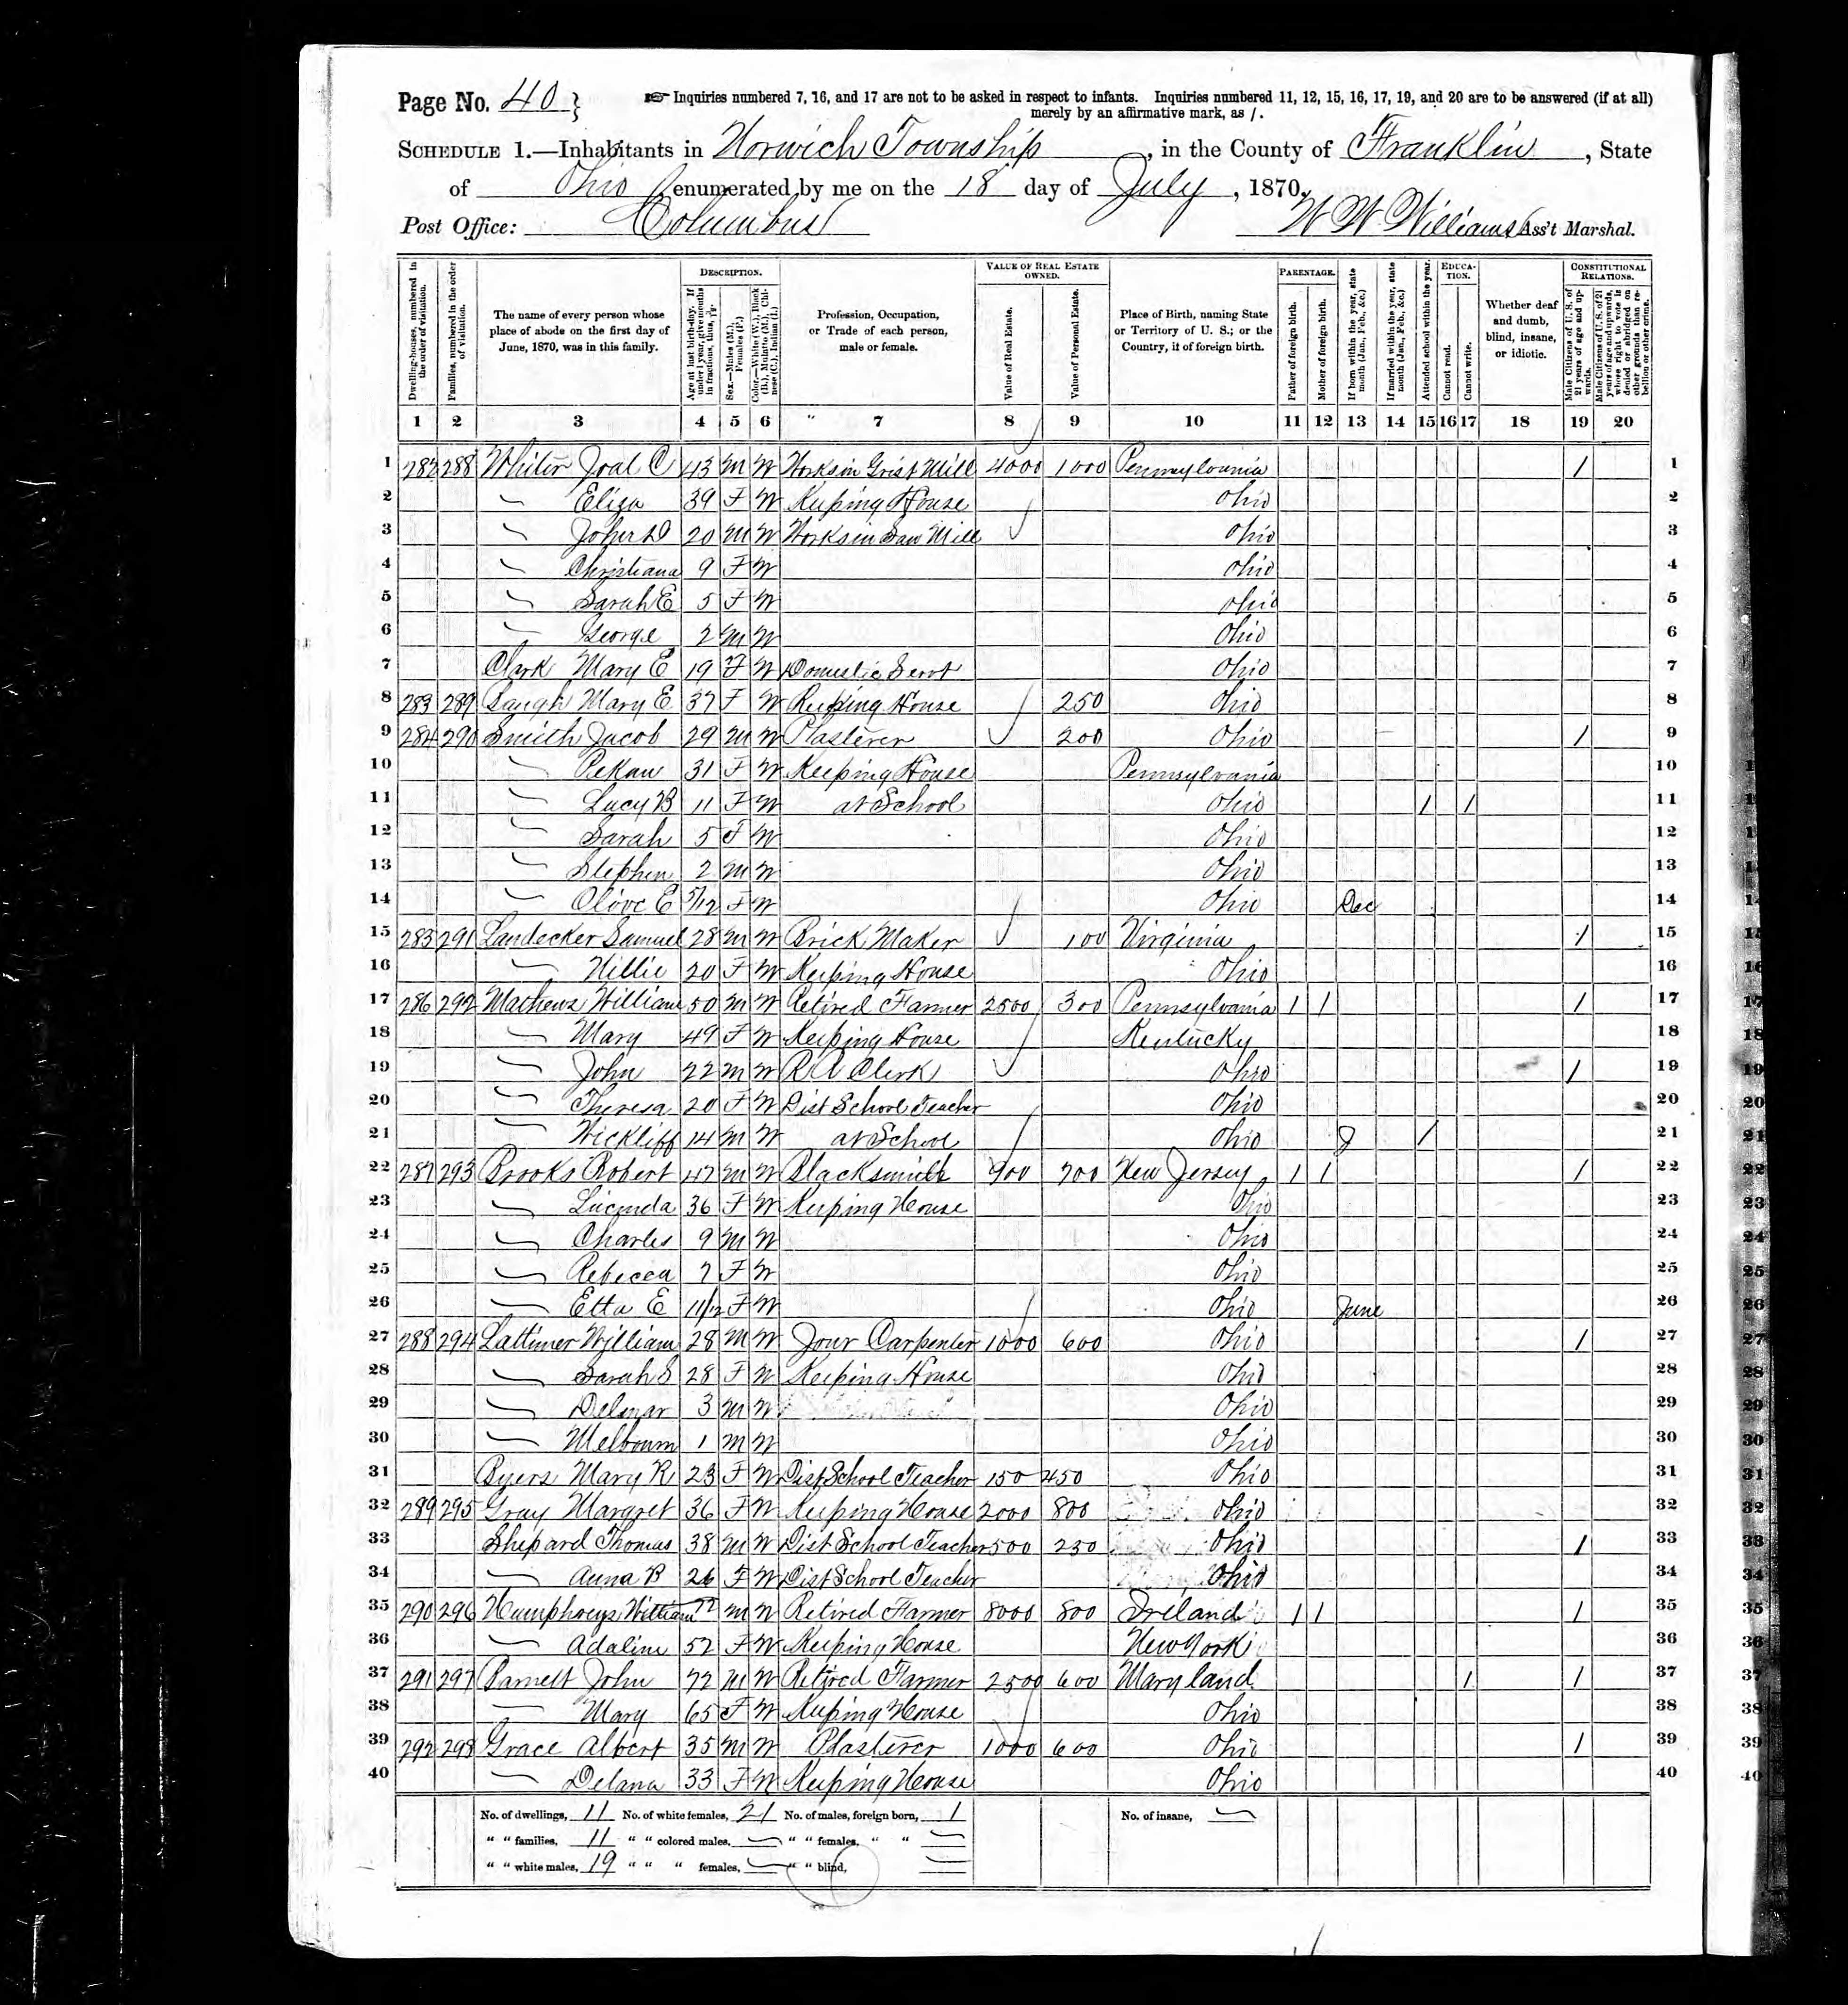 Page No. 40 } ☞ Inquiries numbered 7, 16, and 17 are not to be asked in respect to infants. Inquiries numbered 11, 12, 15, 16, 17, 19, and 20 are to be answered (if at all)
merely by an affirmative mark, as /.
SCHEDULE 1.—Inhabitants in Norwich Township, in the County of Franklin, State
of Ohio enumerated by me on the 18 day of July, 1870.
Post Office: Columbus W W Williams Ass't Marshal.
Dwelling-houses, numbered in the order of visitation.
Families, numbered in the order of visitation.
The name of every person whose place of abode on the first day of June, 1870, was in this family.
DESCRIPTION.
Age at last birth-day. If under 1 year, give months in fractions, thus,
Sex.—Males (M.), Females (F.)
Color.—White (W.), Black (B.), Mulatto (M.), Chinese (C.), Indian (I.)
Profession, Occupation, or Trade of each person, male or female.
VALUE OF REAL ESTATE OWNED.
Value of Real Estate.
Value of Personal Estate.
Place of Birth, naming State or Territory of U. S.; or the Country, if of foreign birth.
PARENTAGE.
Father of foreign birth.
Mother of foreign birth.
If born within the year, state month (Jan., Feb., &c.)
If married within the year, state month (Jan., Feb., &c.)
Attended school within the year.
EDUCATION.
Cannot read.
Cannot write.
Whether deaf and dumb, blind, insane, or idiotic.
CONSTITUTIONAL RELATIONS.
Male Citizens of U. S. of 21 years of age and upwards.
Male Citizens of U. S. of 21 years of age and upwards, whose right to vote is denied or abridged on other grounds than rebellion or other crime.
1 2 3 4 5 6 7 8 9 10 11 12 13 14 15 16 17 18 19 20
1 282 288 Joal C 43 M W Works in Grist Mill 4000 1000 Pennsylvania / 1
2 Eliza 39 F W Keeping House Ohio 2
3 John D 20 M W Works in Saw Mill Ohio 3
4 Christiana 9 F W Ohio 4
5 Sarah E 5 F W Ohio 5
6 George 2 M W Ohio 6
7 Clark Mary E 19 F W Domestic Servt Ohio 7
8 283 289 Mary E 37 F W Keeping House 250 Ohio 8
9 284 290 Smith Jacob 29 M W Plasterer 200 Ohio / 9
10 31 F W Keeping House Pennsylvania 10
11 Lucy B 11 F W at School Ohio / / 11
12 Sarah 5 F W Ohio 12
13 Stephen 2 M W Ohio 13
14 Olive E 5/12 F W Ohio Dec 14
15 285 291 Landecker Samuel 28 M W Brick Maker 100 Virginia / 15
16 20 F W Keeping House Ohio 16
17 286 292 Mathews William 50 M W Retired Farmer 2500 300 Pennsylvania / / / 17
18 Mary 49 F W Keeping House Kentucky 18
19 John 22 M W Clerk Ohio / 19
20 Theresa 20 F W Dist School Teacher Ohio 20
21 Wickliff 14 M W at School Ohio / 21
22 287 293 Brooks Robert 47 M W Blacksmith 700 New Jersey / / / 22
23 Lucinda 36 F W Keeping House Ohio 23
24 Charles 9 M W Ohio 24
25 Rebecca 7 F W Ohio 25
26 Etta E 11/12 F W Ohio June 26
27 288 294 Lattimer William 28 M W Jour Carpenter 1000 600 Ohio / 27
28 Sarah S 28 F W Keeping House Ohio 28
29 Delmar 3 M W Ohio 29
30 Melbourn 1 M W Ohio 30
31 Byers Mary R 23 F W Dist School Teacher 150 450 Ohio 31
32 289 295 Gray Margret 36 F W Keeping House 2000 800 Ohio 32
33 Shepard Thomas 38 M W Dist School Teacher 500 250 Ohio / 33
34 Anna B 26 F W Dist School Teacher Ohio 34
35 290 296 Humphreys William M W Retired Farmer 8000 800 Ireland / / / 35
36 Adaline 52 F W Keeping House New York 36
37 291 297 John 72 M W Retired Farmer 2500 600 Maryland / / 37
38 Mary 65 F W Keeping House Ohio 38
39 292 298 Grace Albert 35 M W Plasterer 1000 600 Ohio / 39
40 Delana 33 F W Keeping House Ohio 40
No. of dwellings, 11 No. of white females, 21 No. of males, foreign born, 1 No. of insane,
" " families, 11 " " colored males, " " females, " "
" " white males, 19 " " " females, " " blind,